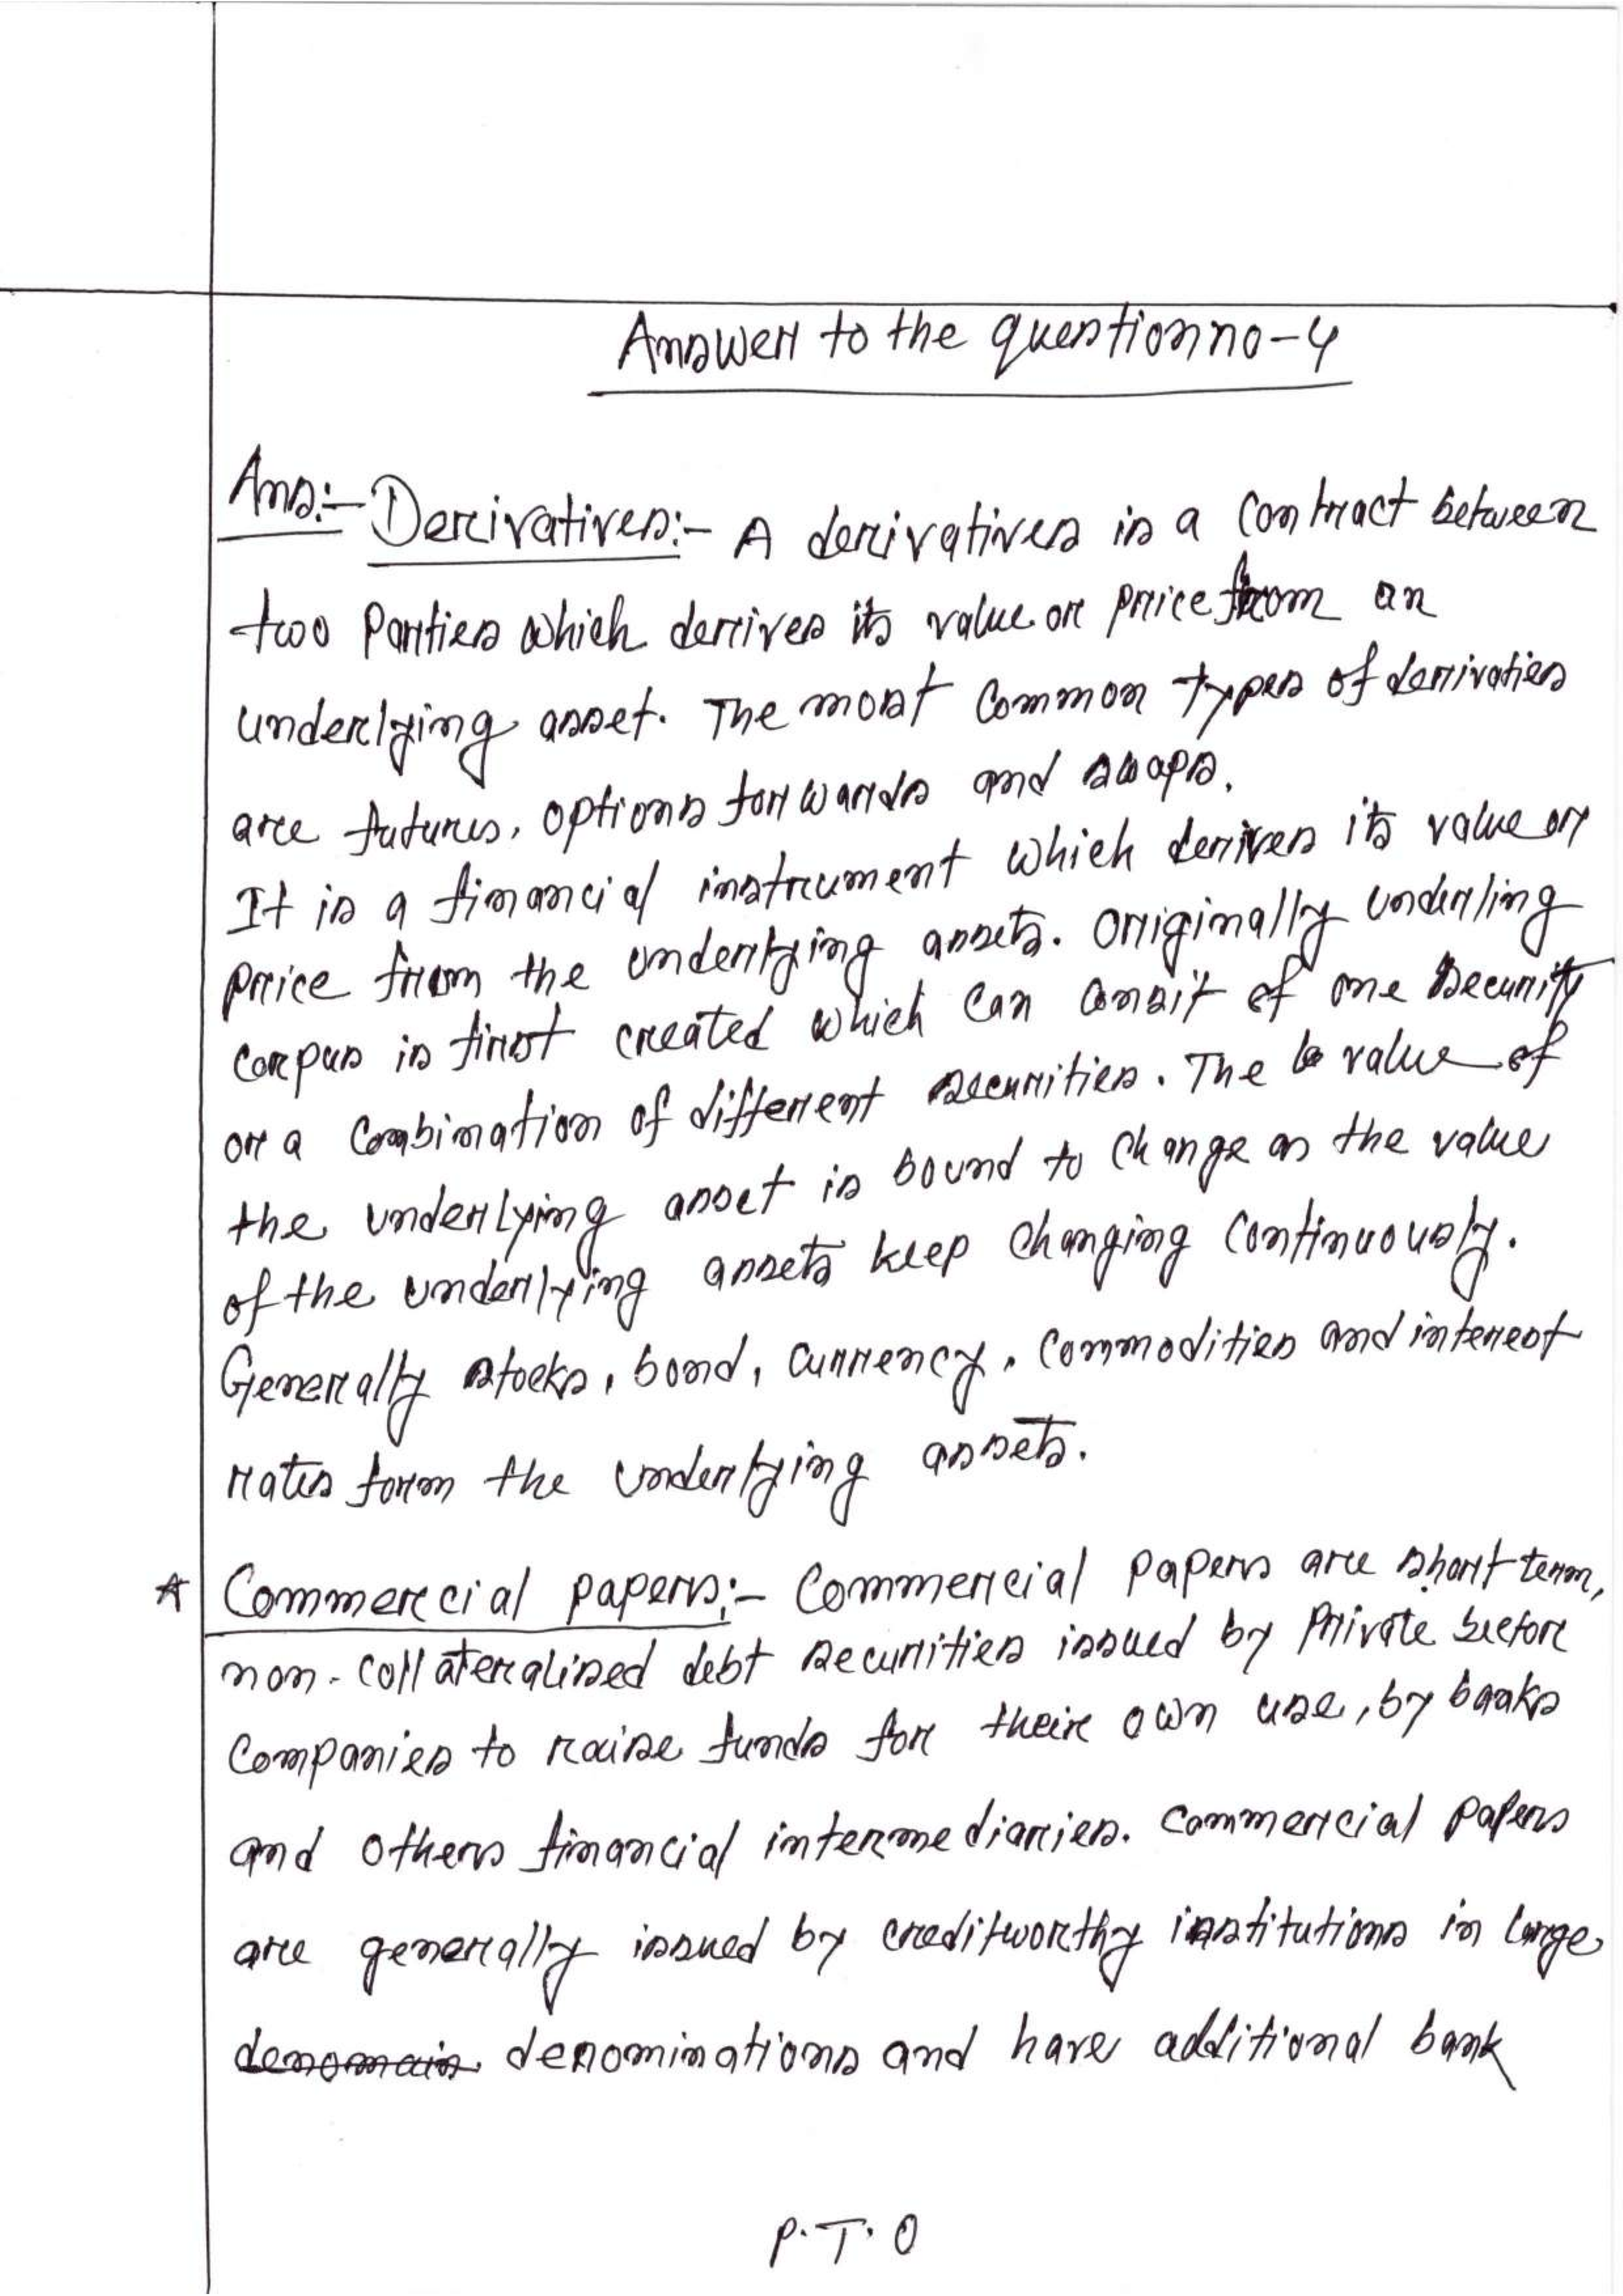 Answer to the question no-4
Ans:- Derivatives:- A derivatives is a contract between
two Parties which derives its value or price from an
underlying asset. The most common types of derivaties
are futures, options forwards and swaps.
It is a financial instrument which derives its value or
price from the underlying assets. Originally underling
corpus is first created which can consit of one security
or a combination of different securities. The value of
the underlying asset is bound to change as the value
of the underlying assets keep changing continuously.
Generally stocks, bond, currency, commodities and interest
rates form the underlying assets.
* Commercial papers:- Commercial papers are short term,
non-collateralised debt securities issued by Private sector
companies to raise funds for their own use, by banks
and others financial intermediaries. Commercial papers
are generally issued by creditworthy institutions in large
denominations and have additional bank
P.T.O